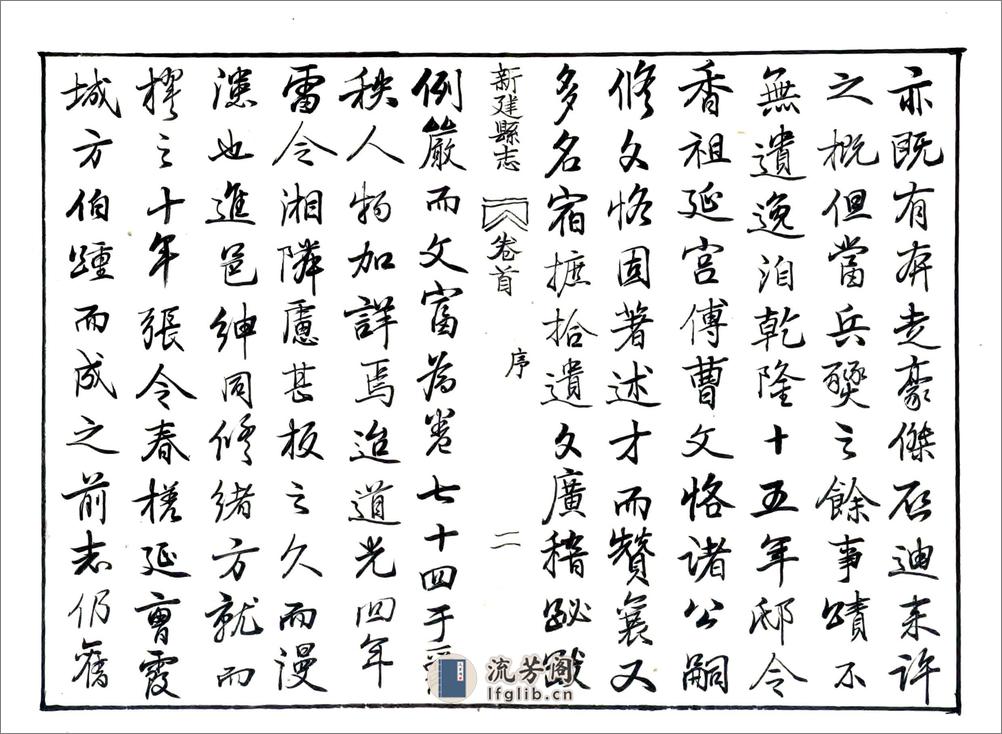 亦既有奔走豪傑啟迪来許
之概但當兵燹之餘事蹟不
無遺逸洎乾隆十五年邸令
香祖延宮傅曹文恪諸公嗣
修文恪固著述才而贊襄又
多名宿摭拾遺文廣稽祕
新建縣志 卷首 序 二
例嚴而文富為卷七十四于
秩人物加詳焉迨道光四年
雷令湘隣慮甚板之久而漫
漶也進邑紳同修緒方就而
擢之十年張令春槎延曹霞
城方伯踵而成之前志仍舊
流芳阁
lfglib.cn